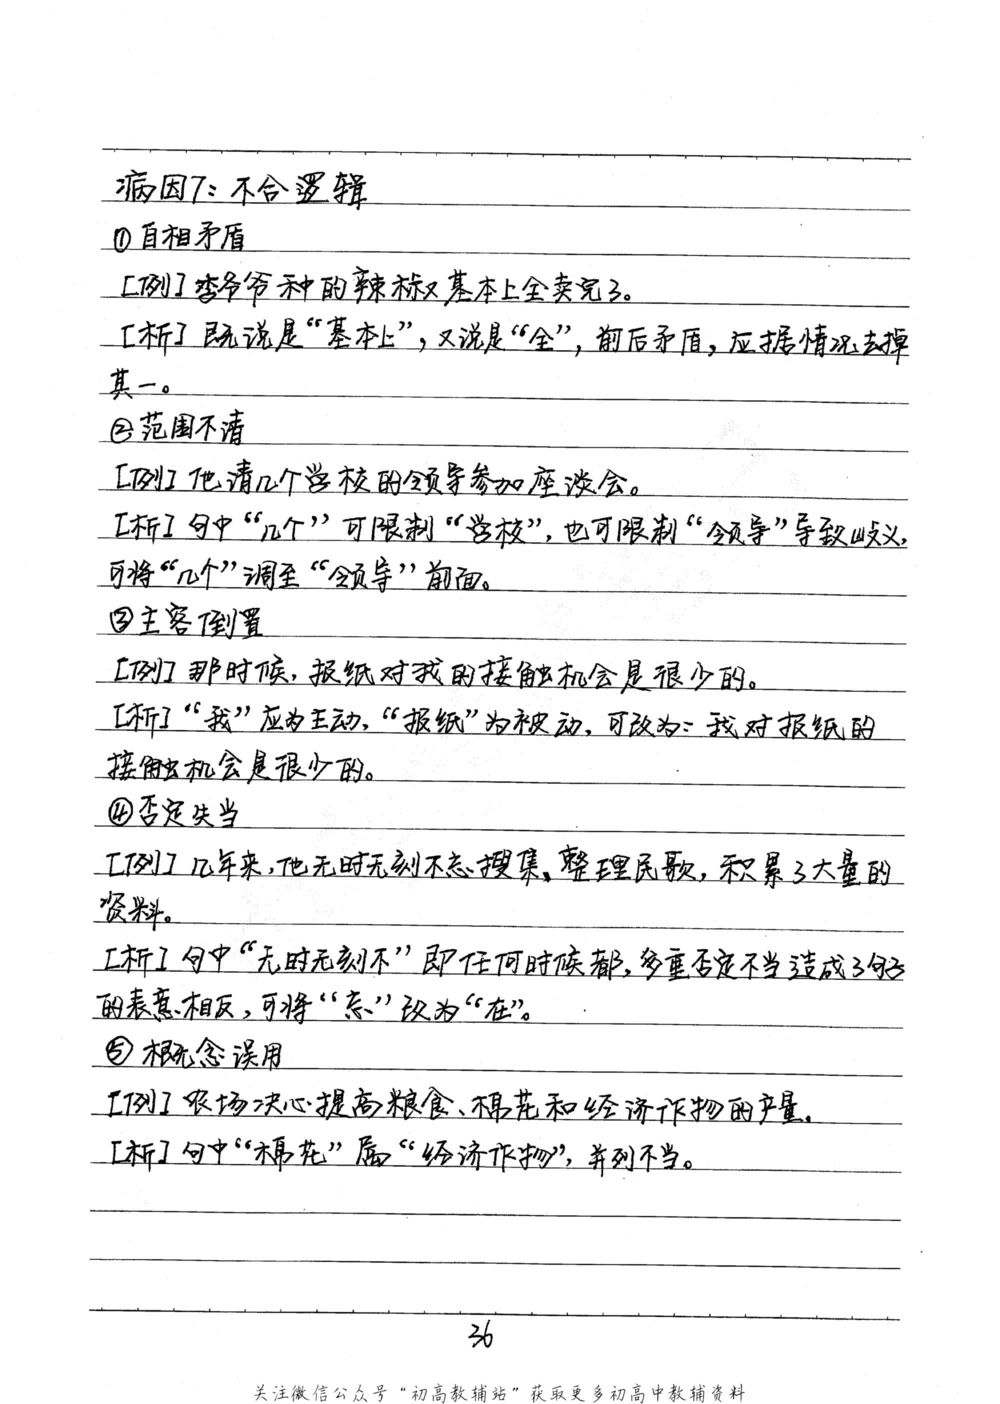 病因7：不合逻辑
①自相矛盾
[例]李爷爷种的辣椒又基本上全卖完了。
[析]既说是“基本上”，又说是“全”，前后矛盾，应据情况去掉
其一。
②范围不清
[例]他请几个学校的领导参加座谈会。
[析]句中“几个”可限制“学校”，也可限制“领导”导致歧义，
可将“几个”调至“领导”前面。
③主客倒置
[例]那时候，报纸对我的接触机会是很少的。
[析]“我”应为主动，“报纸”为被动，可改为：我对报纸的
接触机会是很少的。
④否定失当
[例]几年来，他无时无刻不忘搜集、整理民歌，积累了大量的
资料。
[析]句中“无时无刻不”即任何时候都，多重否定不当造成了句子
的表意相反，可将“忘”改为“在”。
⑤概念误用
[例]农场决心提高粮食、棉花和经济作物的产量。
[析]句中“棉花”属“经济作物”，并列不当。
36
关注微信公众号“初高教辅站”获取更多初高中教辅资料